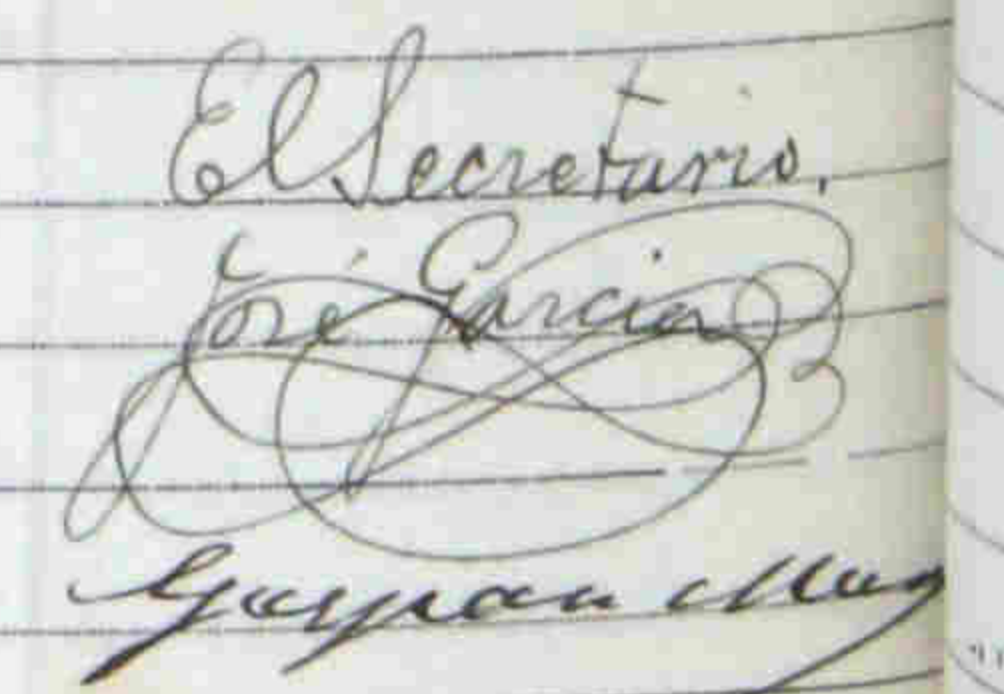 El Secretario.
José Garcia
Gaspar